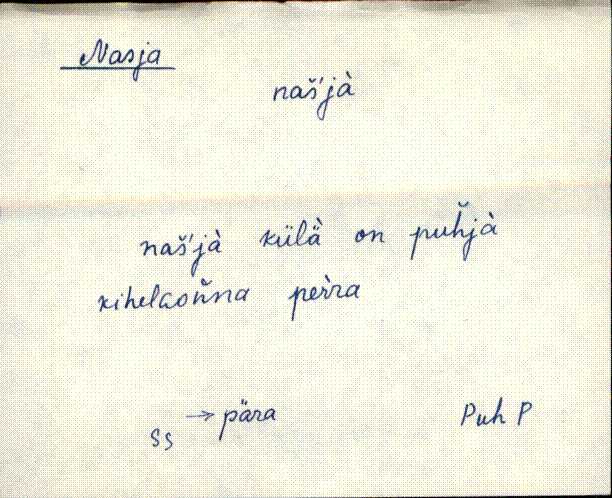 Nasja
naš'jà
naš'jà külä̀ on puh̆jà
kihelkon̆na per̀ra
→ pära
ss
Puh P